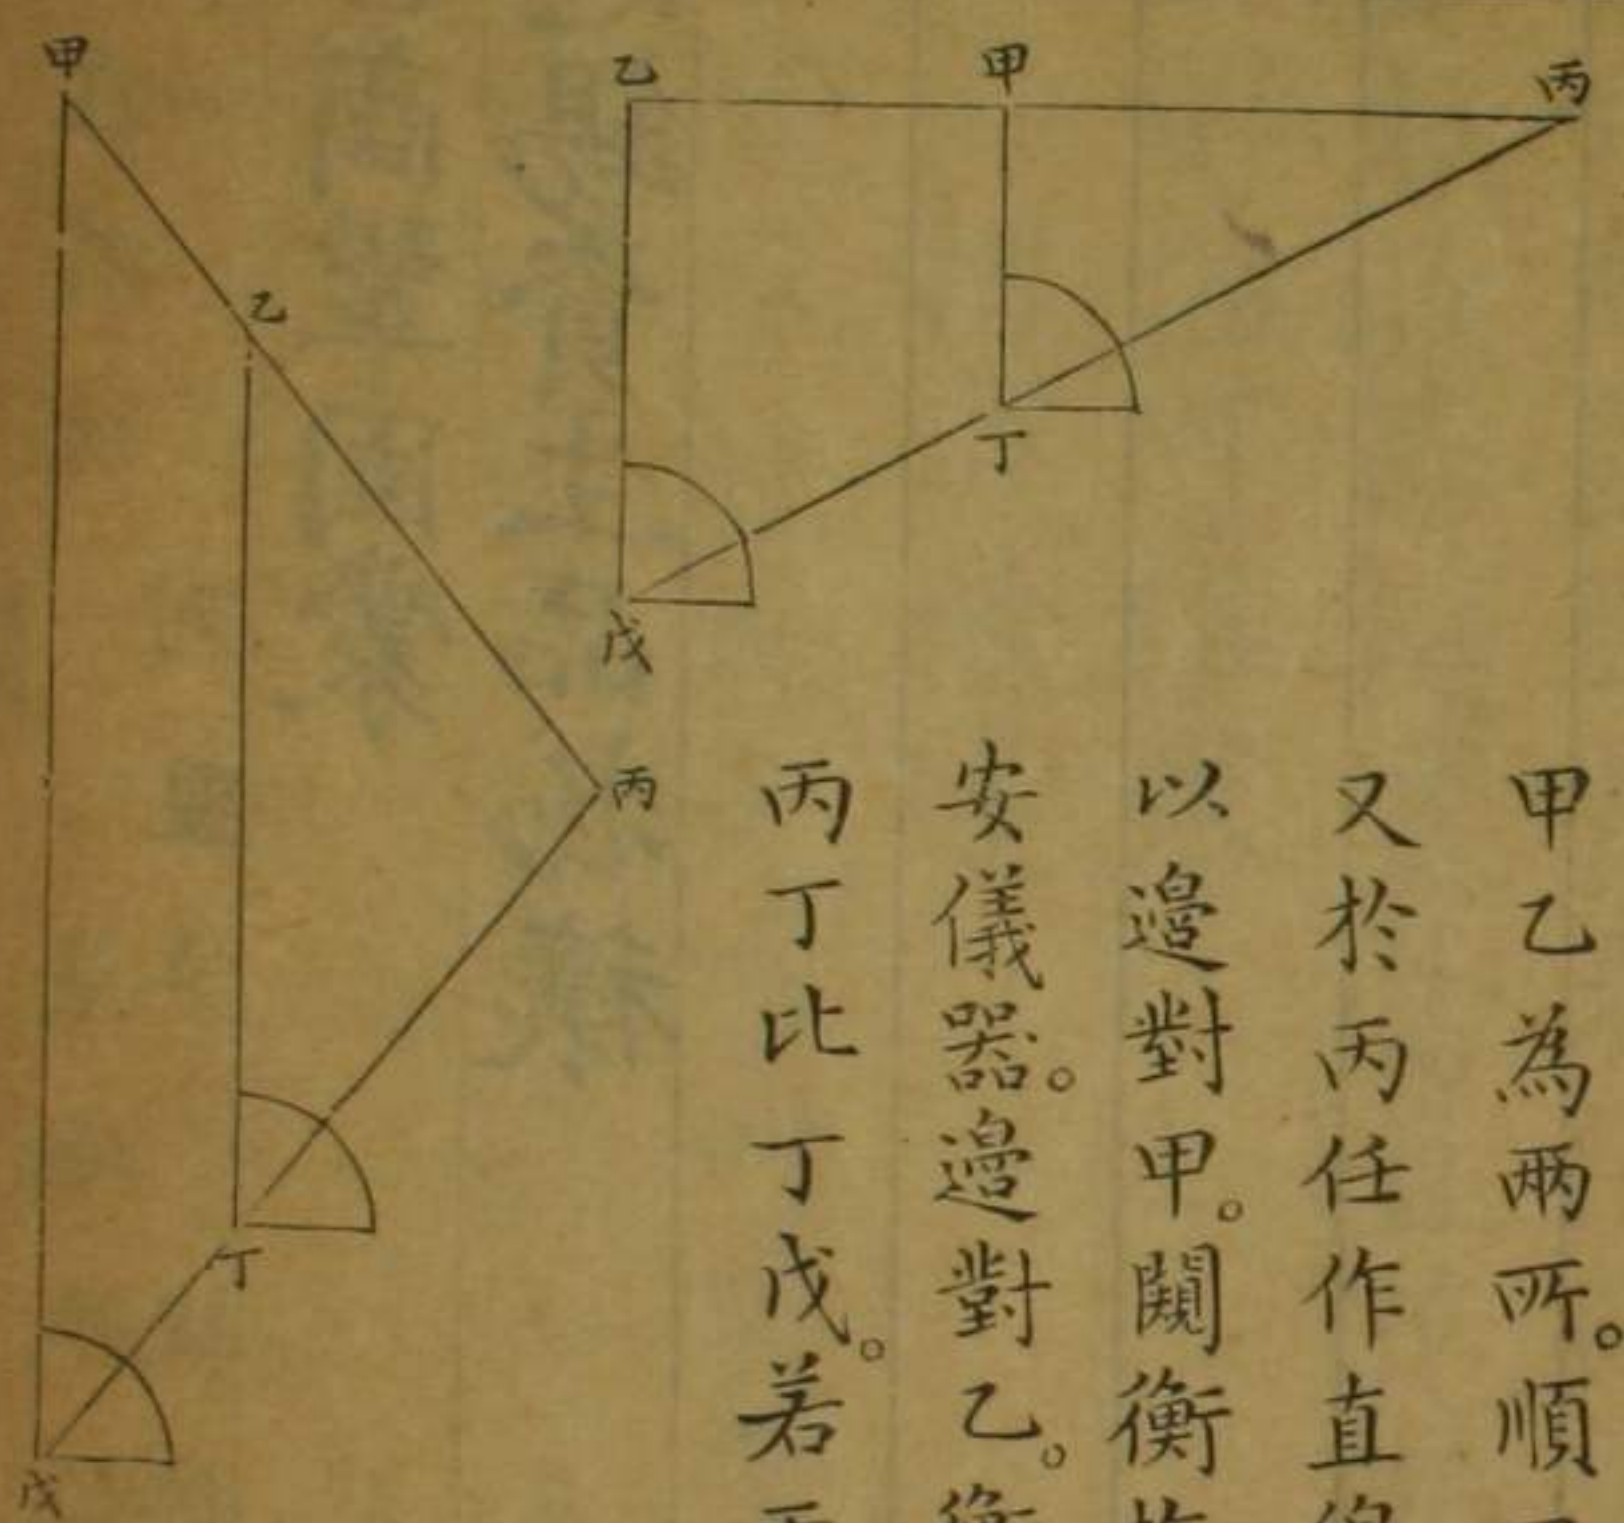 甲
乙
丙
丁
戊
乙
甲
丙
丁
戊
甲乙為兩所。順
又於丙任作直
以邊對甲。闚衡
安儀器。邊對乙。
丙丁比丁戊。若